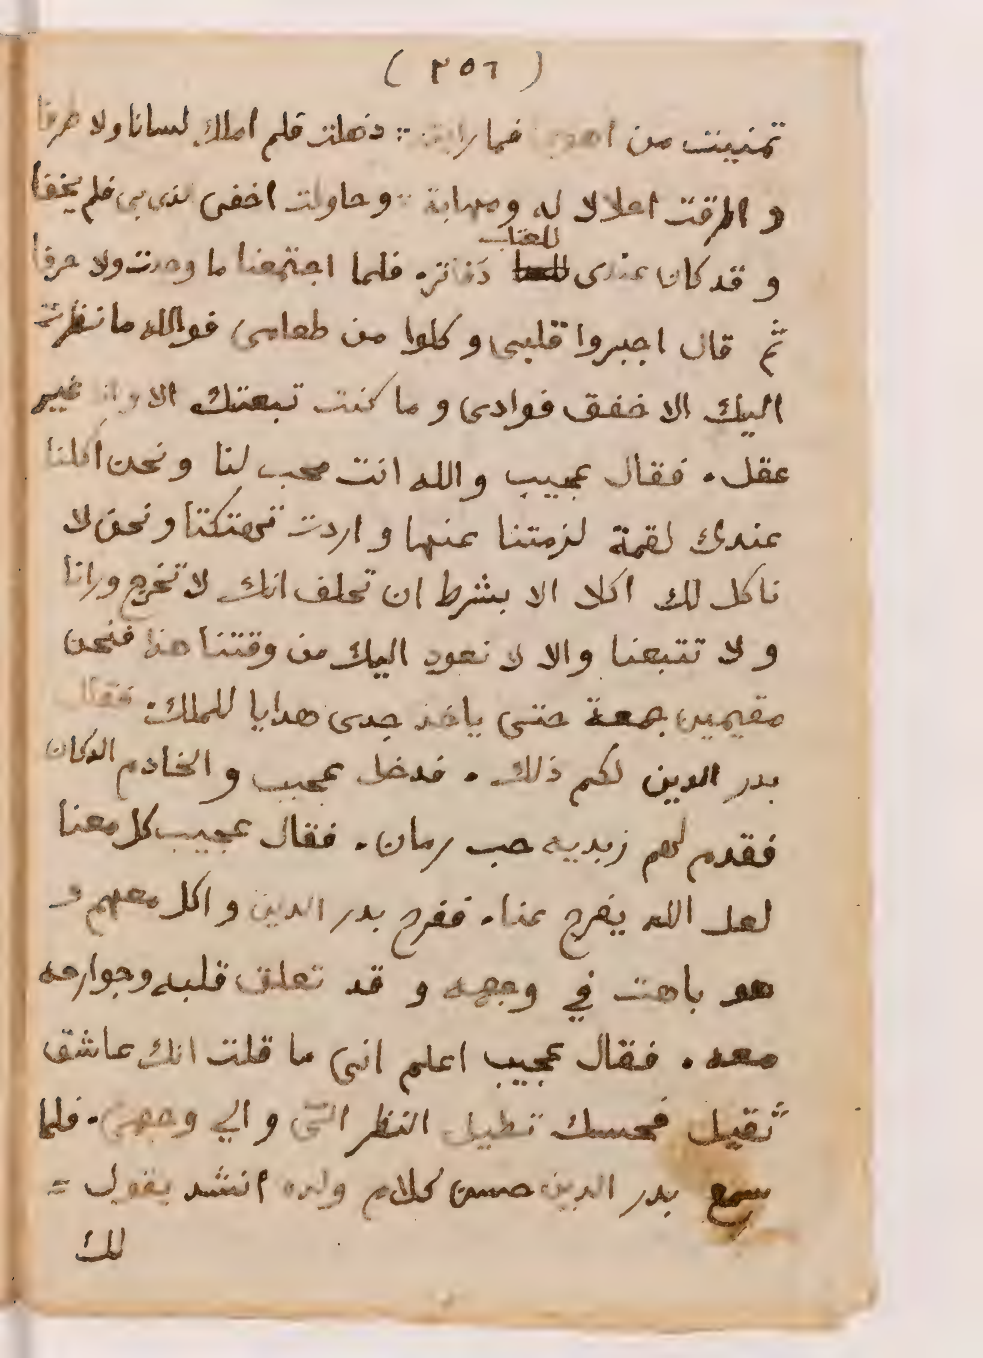 ( ٢٥٦ )
تمنيت من اهوى فما رايته :: ذهلت فلم املك لسانا ولا طرفا
و اطرقت اجلالا له ومهابة :: وحاولت اخفى الذى بى فلم يخفا
و قد كان عندى للعتاب دفاتر. فلما اجتمعنا ما وجدت ولا حرفا
ثم قال اجبروا قلبى وكلوا من طعامى فوالله ما نظرت
اليك الا خفق فوادى وما كنت تبعتك الا وانا غير
عقل . فقال عجيب والله انت محب لنا ونحن اكلنا
عندك لقمة لزمتنا عنها واردت تهتكنا ونحن لا
ناكل لك اكلا الا بشرط ان تحلف انك لا تخرج ورانا
و لا تتبعنا والا لا نعود اليك من وقتنا هذا فنحن
مقيمين جمعة حتى ياخذ جدى هدايا للملك. فقال
بدر الدين لكم ذلك . فدخل عجيب و الخادم الدكان
فقدم لهم زبديه حب رمان . فقال عجيب كل معنا
لعل الله يفرج عنا. ففرح بدر الدين واكل معهم و
هو باهت في وجهه و قد تعلق قلبه وجوارحه
معه . فقال عجيب اعلم انى ما قلت انك عاشق
ثقيل فحسبك تطيل النظر التى والي وجهى. فلما
سمع بدر الدين حسن كلام ولده انشد يقول =
لك